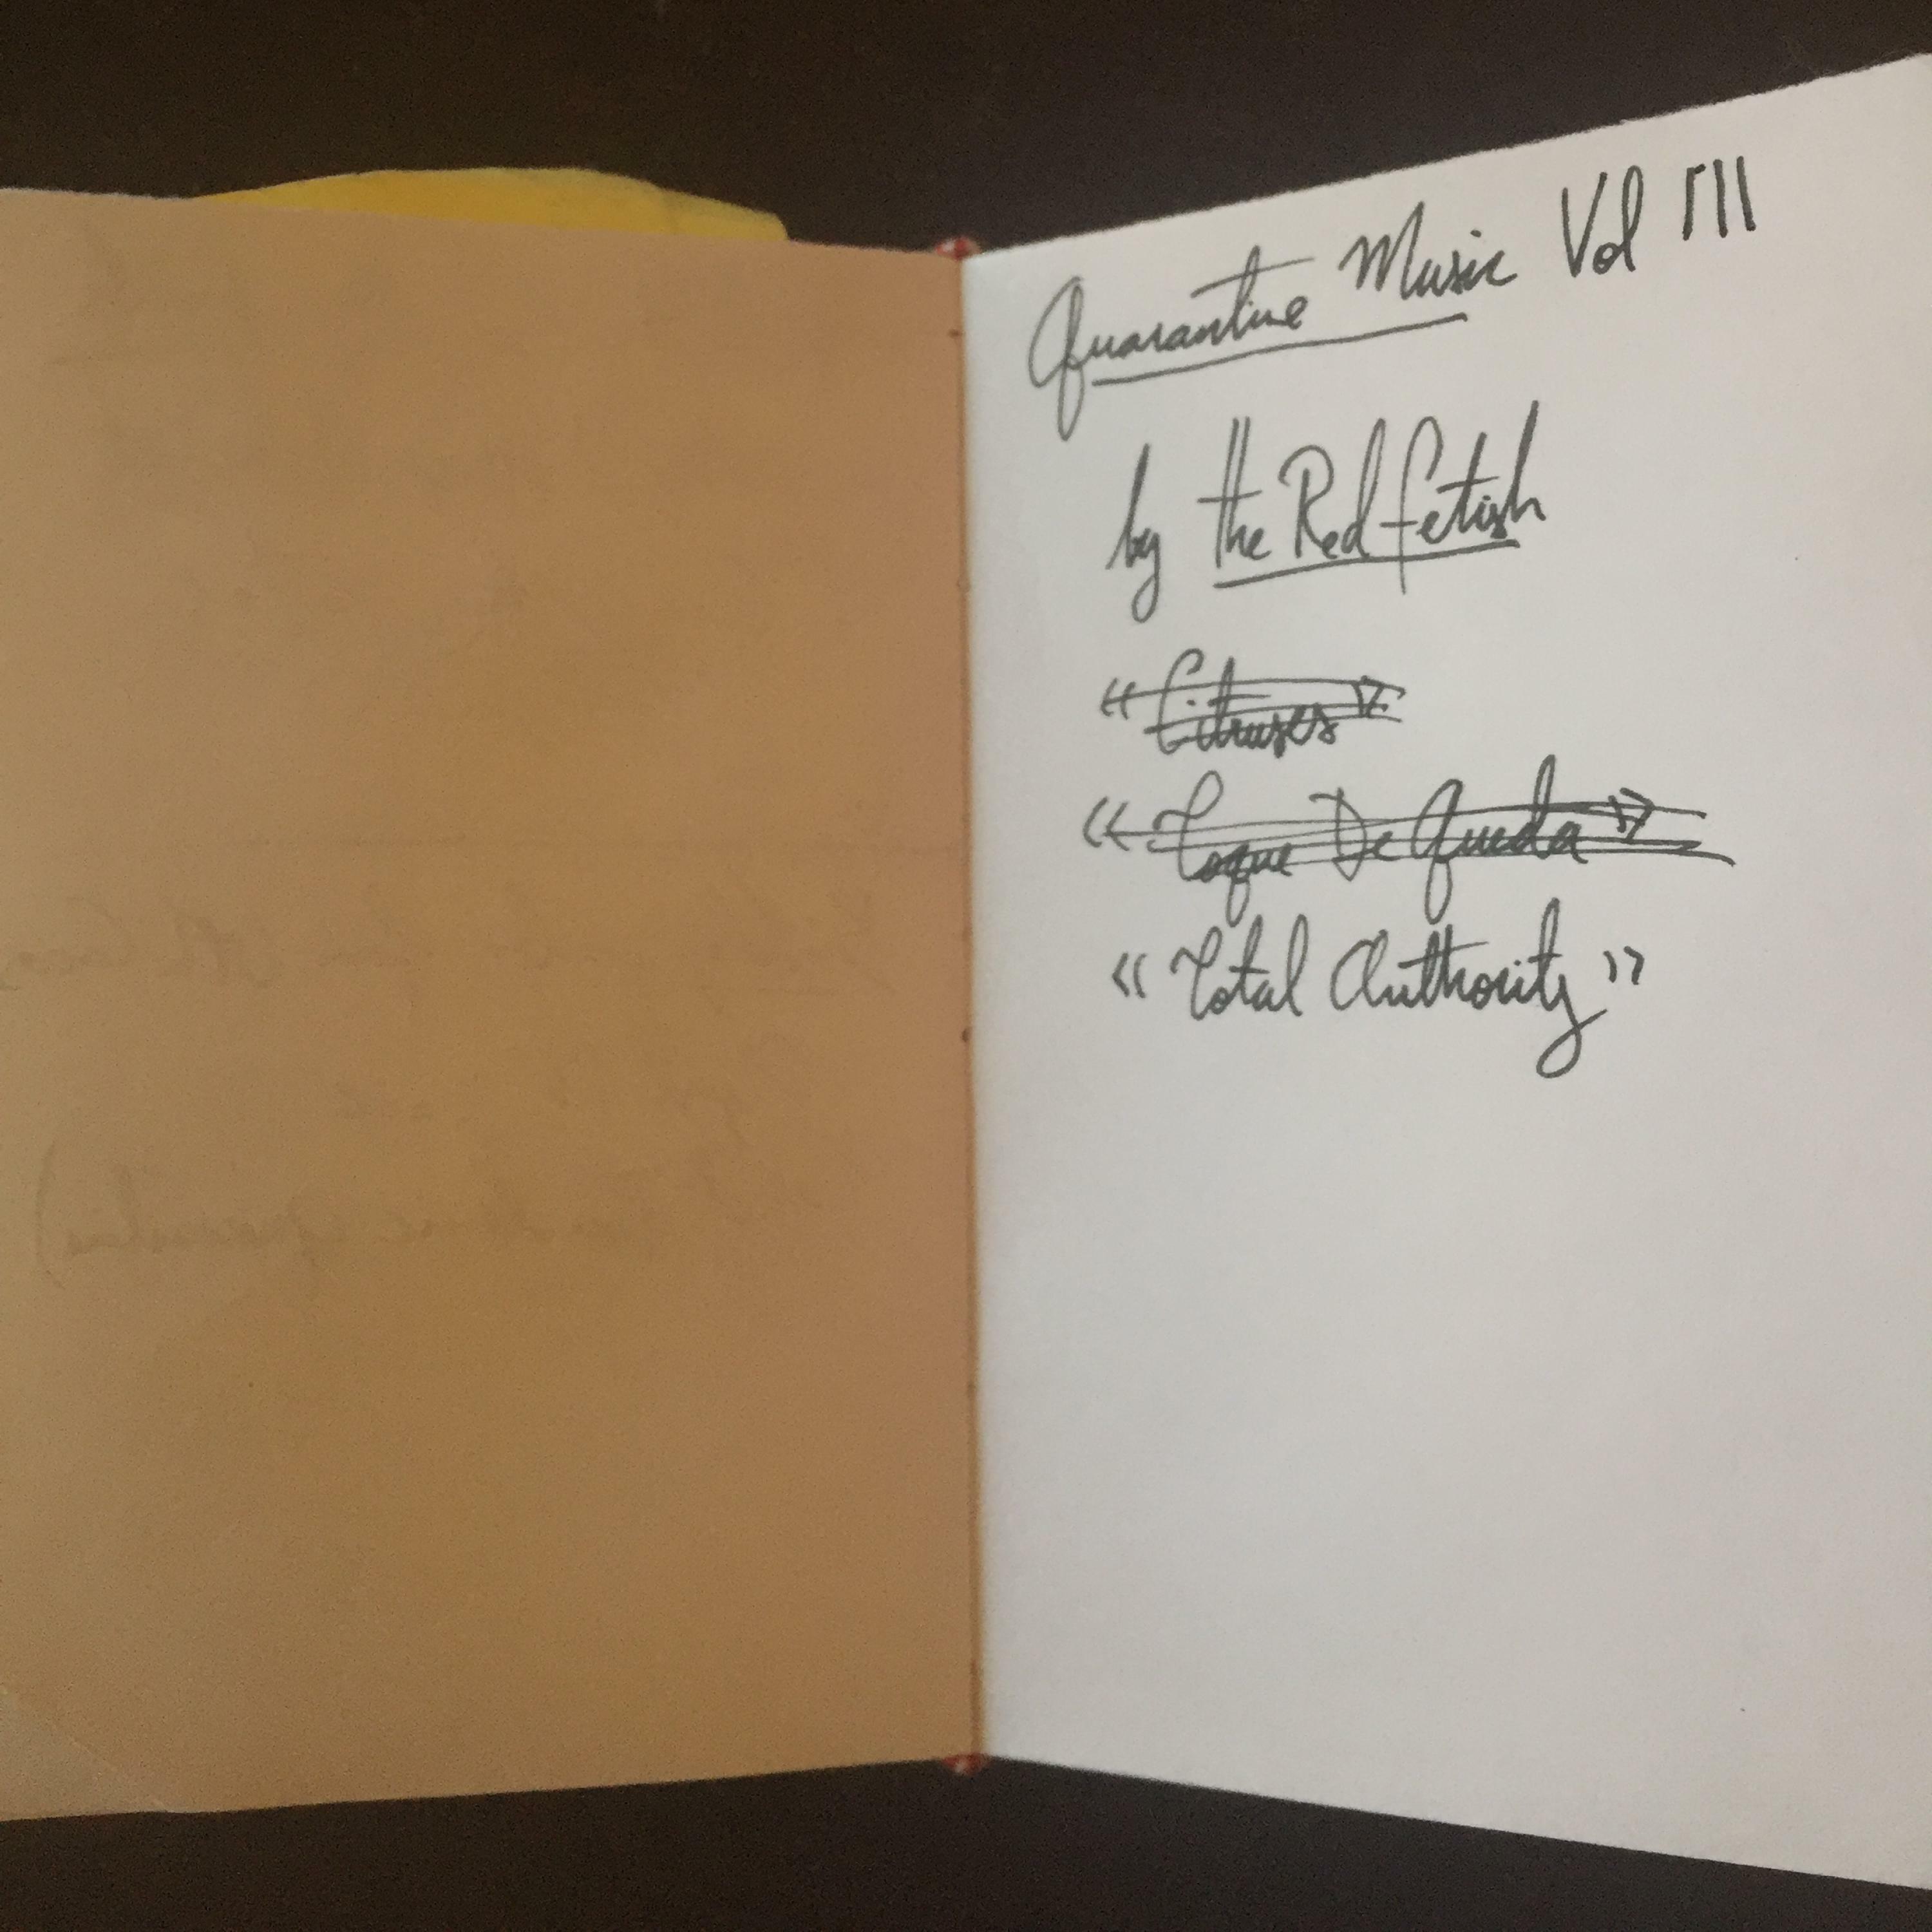 Quarantine Music Vol III
by the Red fetish
« Citruses »
« Toque De Queda »
« Total Authority »